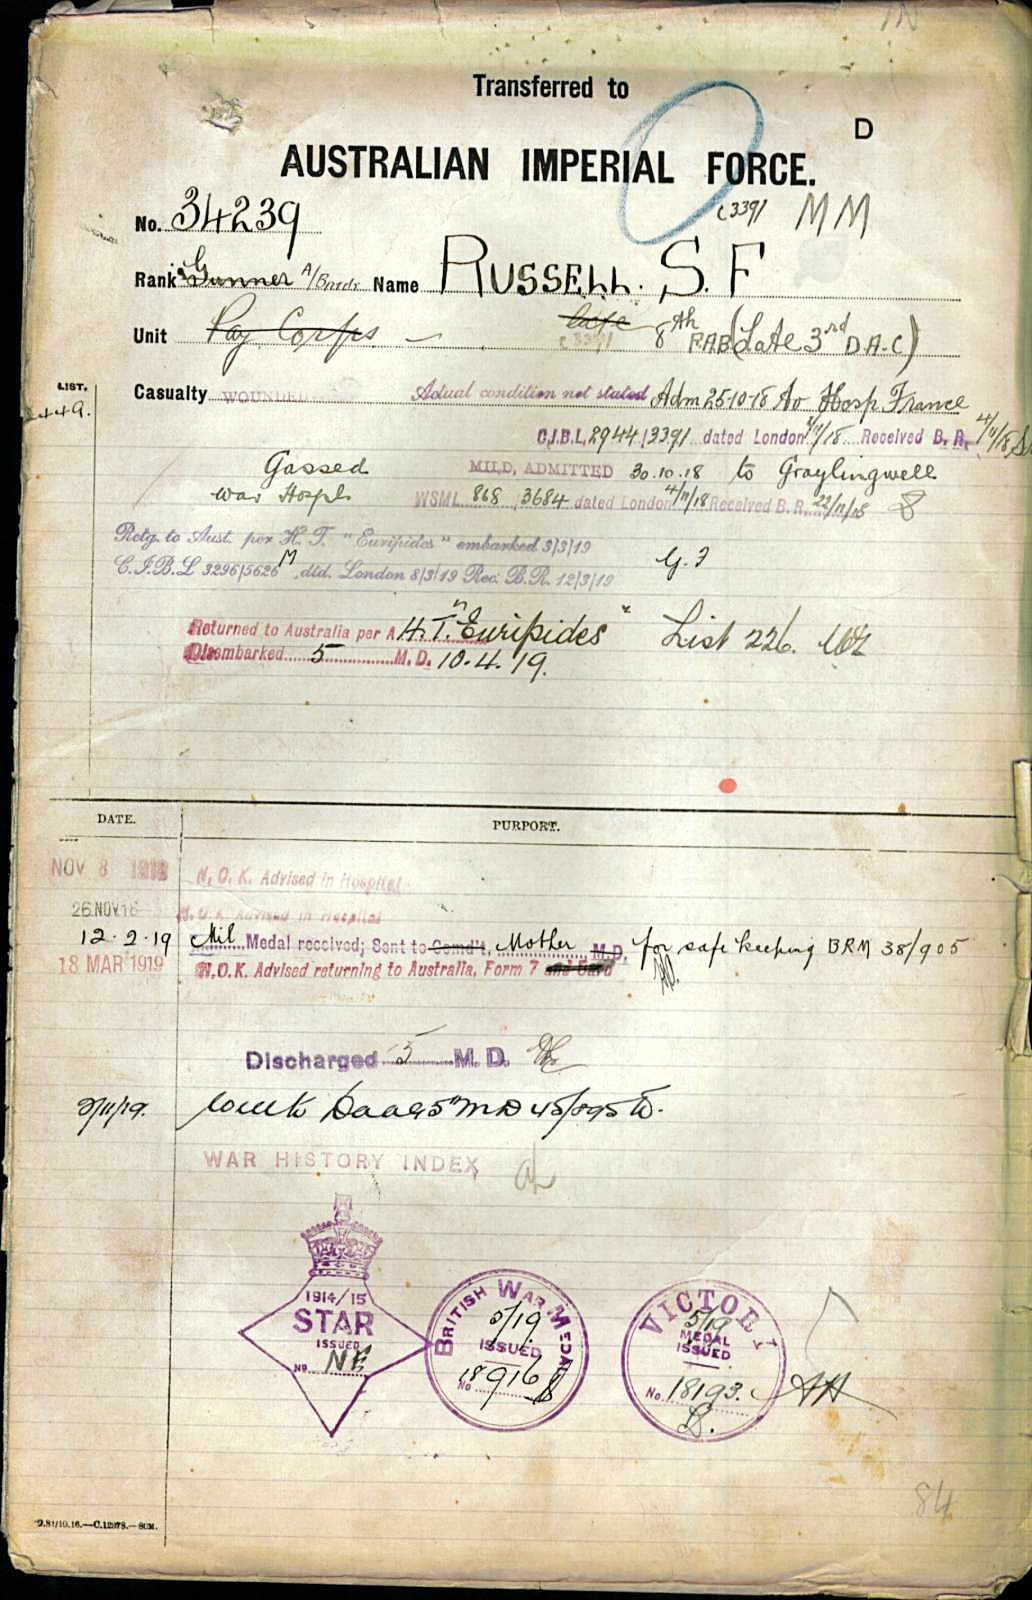 Transferred to
D
AUSTRALIAN IMPERIAL FORCE.
c3391 MM
No. 34239
Rank Gunner A/Bmdr Name RUSSELL. S. F
Unit Pay Corps late 8th F.A.B. (Late 3rd D.A.C)
c3391
LIST.
449.
Casualty WOUNDED Actual condition not stated Adm 25-10-18 to Hosp France
C.I.B.L. 2944/3391 dated London /11/18 Received B. R. 4/11/18
Gassed MILD, ADMITTED 30.10.18 to Graylingwell
War Hospl. WSML 868 3684 dated London 4/11/18 Received B. R. 22/11/18
Retg. to Aust. per H. T. "Euripides" embarked 3/3/19
C.I.B.L 3296/5626 M dtd. London 8/3/19 Rec. B.R. 12/3/19
Returned to Australia per H.T. "Euripides" List 226.
Disembarked 5 M. D. 10.4.19.
DATE. PURPORT.
NOV 8 1918 N. O. K. Advised in Hospital
26 NOV 18 N. O. K Advised in Hospital
12.2.19 Mil Medal received; Sent to Comd't, Mother M.D. for safe keeping BRM 38/905
18 MAR 1919 N.O.K. Advised returning to Australia, Form 7 and Card
Discharged 5 M. D.
WAR HISTORY INDEX
1914/15
STAR
ISSUED
No. NE
BRITISH WAR MEDAL
5/19
ISSUED
No. 18916
VICTORY
5/19
MEDAL
ISSUED
No. 18193.
84